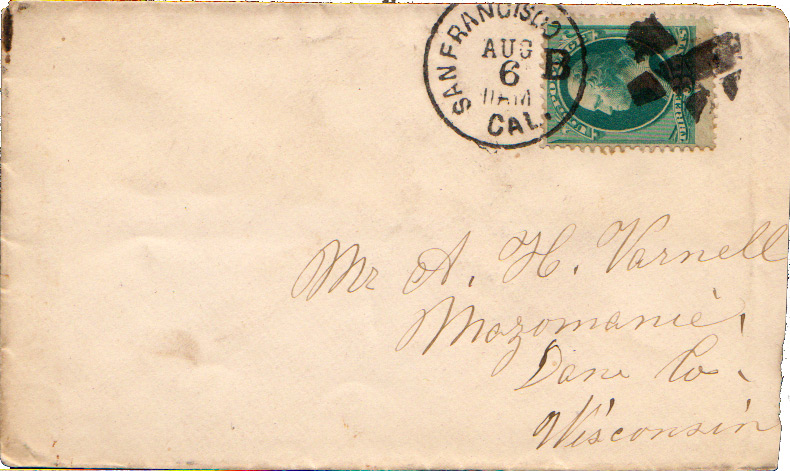 SAN FRANCISCO
AUG
6
11 AM
CAL.
B
Mr A. H. Varnell
Mazomanie.
Dane Co.
Wisconsin